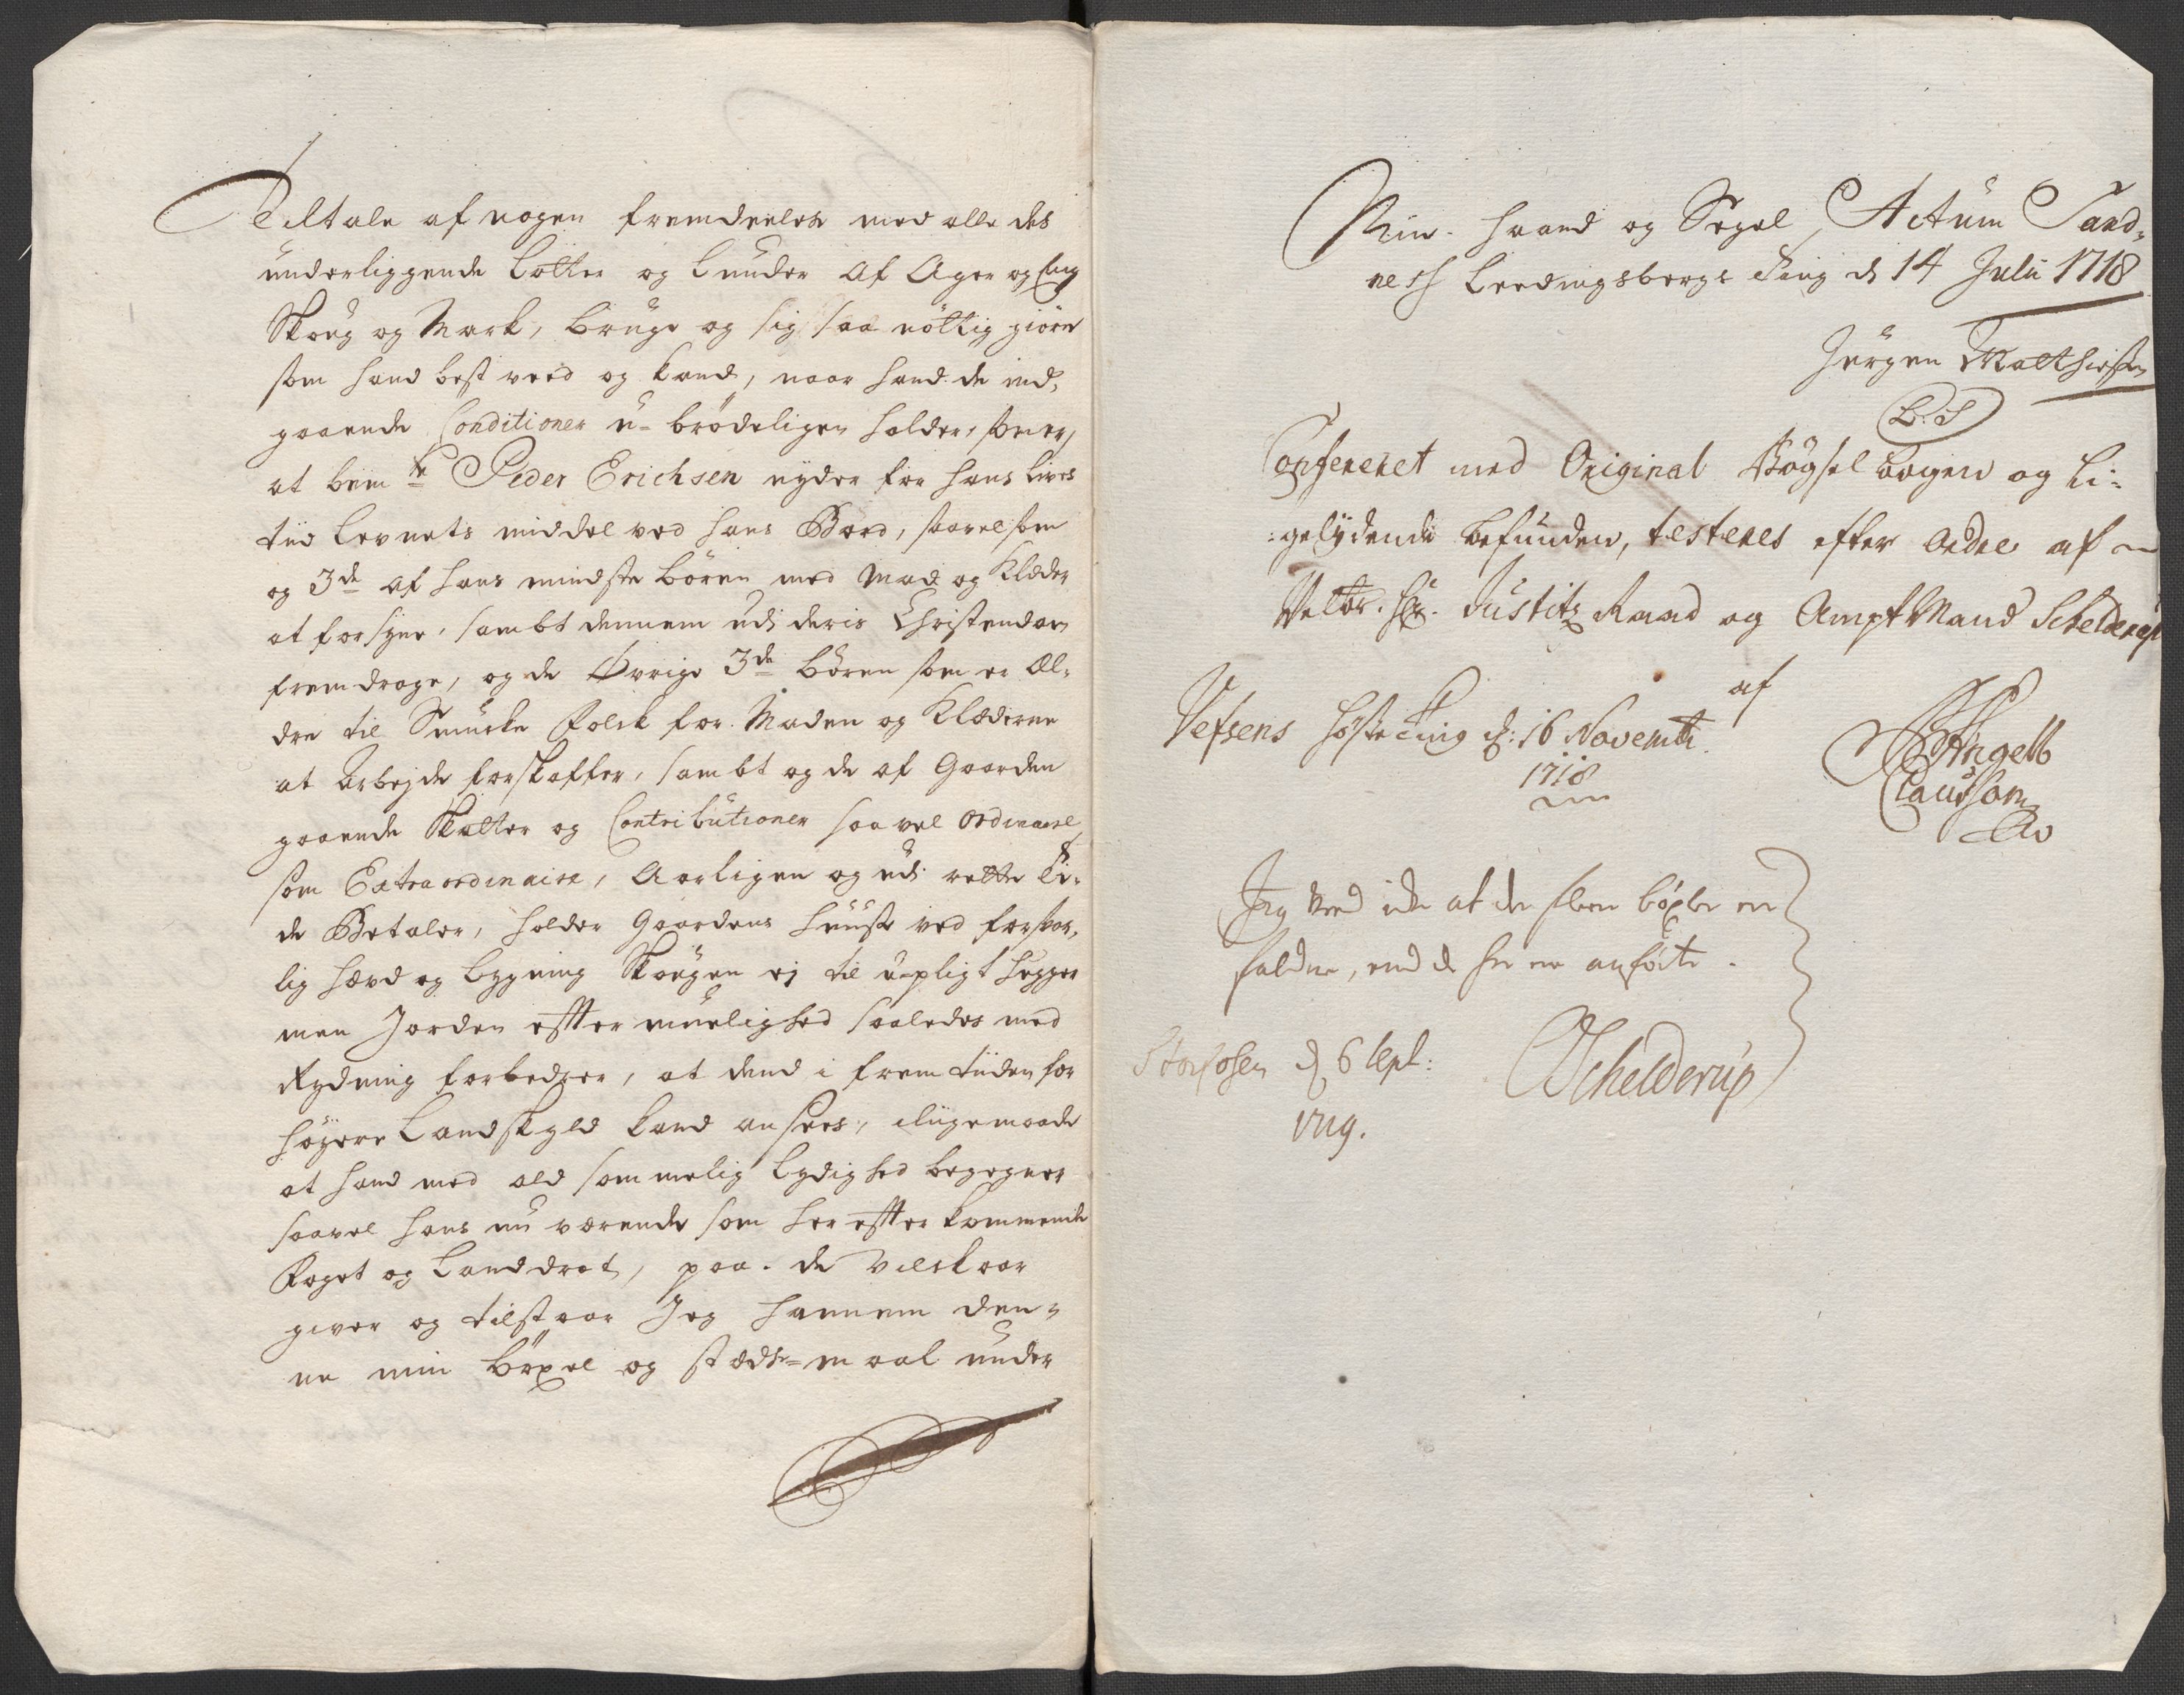 Tiltale af nogen fremdeeles med alle des
underliggende Lotter og Lunder af Ager og Eng
Skoug og Mark, bruge og sig saa nøttig giøre
som hand best veed og kand, naar hand de ind,
gaaende Conditioner u-brødeligen holder, som er,
at bem.te Peder Erichsen nyder for hans livs
tiid levnets middel ved hans Bord, saavelsom
og 3de af hans mindste børen med Mad og Klæder
at forsyne, sambt dennem udi deris Christendom
fremdrage, og de Øvrige 3de børen som er Æl-
dre til Smucke folck for Maden og Klæderne
at arbejde forskaffer, sambt og de af Gaarden
gaaende Skatter og Contributioner saa vel ordinaire
som Extraordinaire, Aarligen og udi rette Ti-
de Betaler, holder Gaardens Huuse ved forsvar,
lig hævd og bygning Skougen ej til u-pligt hugger
men Jorden effter muelighed saaledes med
Rydning forbedrer, at dend i frem tiiden for
høyere Landskyld kand ansees, iligemaade
at hand med ald sommelig lydighed begegner
saavel hans nu værende som her effter kommende
Foget og Landdrot, paa de vilckaar
giver og tilstaar Jeg hannem den-
ne min böxel og stæds-maal under
Min haand og Segel, Actum Sand-
ness Leedingsbergs Ting d 14 Julii 1718
Jürgen Matthiesen
L. S
Confereret med Original Bøgsel bogen og li-
:gelydende befunden, testeres efter ordre af
Velbr. Hr. Justitz Raad og AmptMand Schelderup
af
Vefsens Høste Ting d: 16 Novembr.
1718
Angell
Claussøn
Jeg veed icke at der fleere böxler er
falden, end de her ere anförte.
Storfosen d 6 sept:
1719.
Schelderup